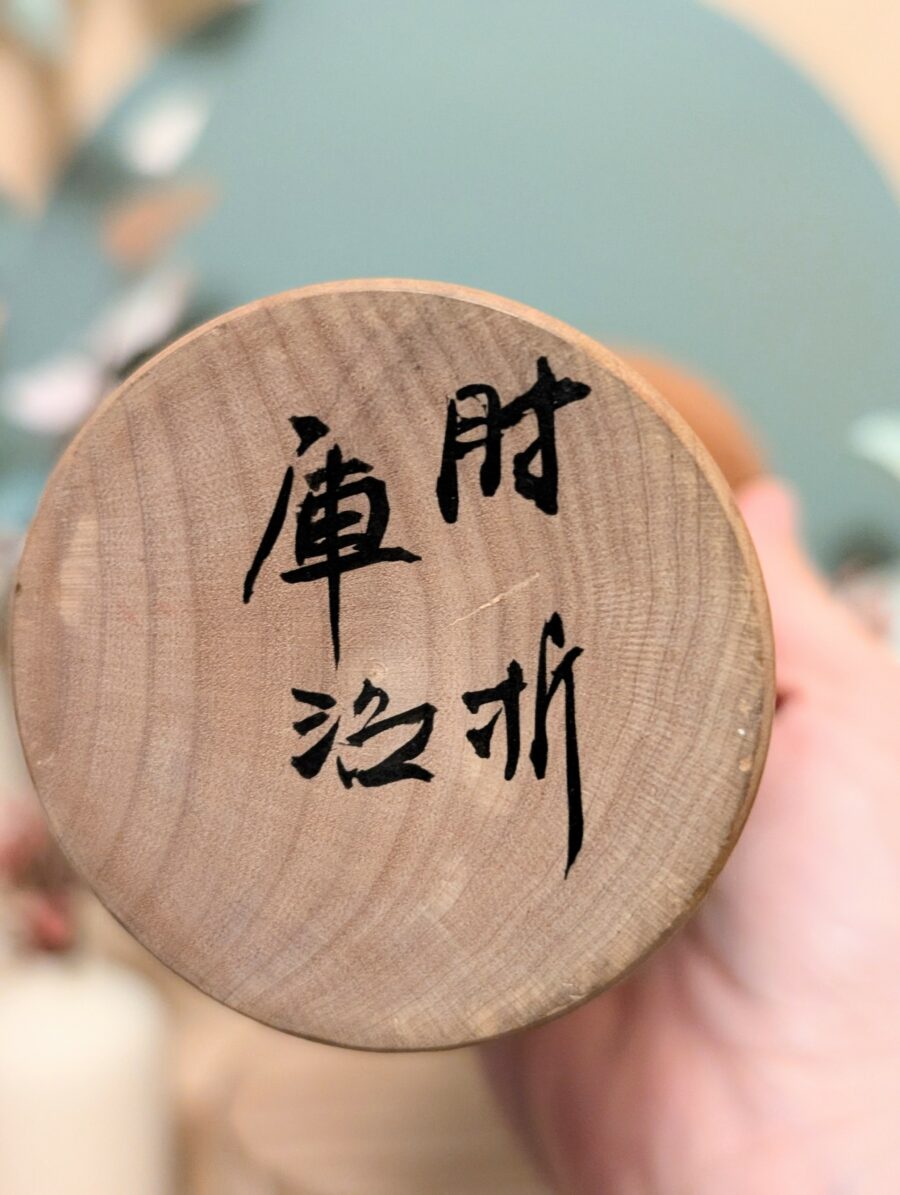 肘折
庫治